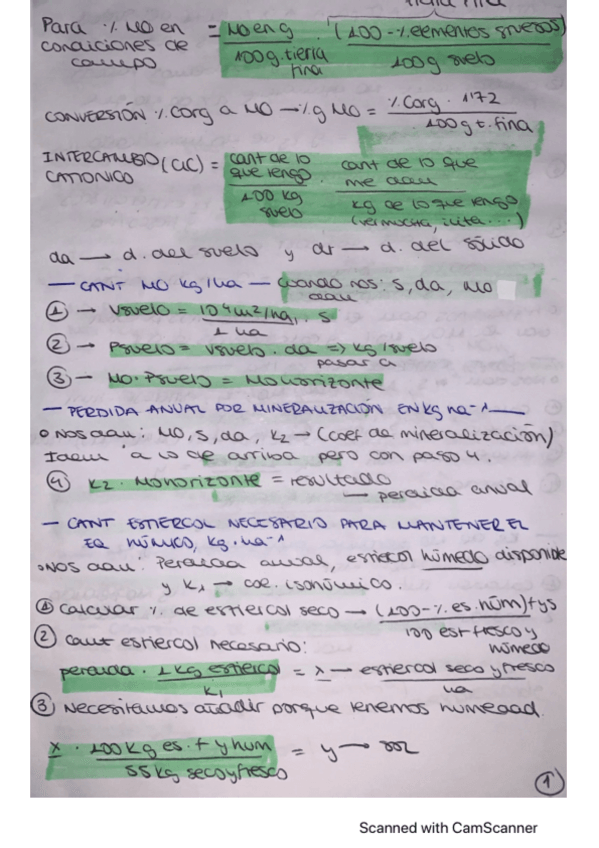 tierra fina
Para % MO en condiciones de campo = MO en g / 100g. tierra fina · (100 - % elementos gruesos) / 100 g suelo
CONVERSIÓN % Corg a MO → % g MO = % Corg · 1'72 / 100 g t. fina
INTERCAMBIO CATIONICO (CIC) = cant de lo que tengo / 100 kg suelo · cant de lo que me dan / kg de lo que tengo (vermiculita, ilita...)
da → d. del suelo y dr → d. del sólido
— CANT MO kg/ha — Cuando nos dan: s, da, MO
① → Vsuelo = 10⁴ m²/ha / 1 ha · s
② → Psuelo = Vsuelo · da => kg/suelo
pasar a
③ — MO · Psuelo = MOhorizonte
— PERDIDA ANUAL POR MINERALIZACIÓN EN kg ha⁻¹ —
o Nos dan: MO, s, da, K₂ → (coef de mineralización)
Idem a lo de arriba pero con paso 4.
④ K₂ · MOhorizonte = resultado
→ perdida anual
— CANT ESTIERCOL NECESARIO PARA MANTENER EL
EQ HÚMICO, kg · ha⁻¹
o Nos dan: Perdida anual, estiercol húmedo disponible
y K₁ → coe. isohúmico.
① Calcular % de estiercol seco → (100 - % es. húm) f y s / 100 est fresco y húmedo
② Cant estiercol necesario:
perdida · 1 kg estiercol / K₁ = x — estiercol seco y fresco / ha
③ Necesitamos añadir porque tenemos humedad.
x · 100 kg es. f y hum / 55 kg seco y fresco = y →
①
Scanned with CamScanner